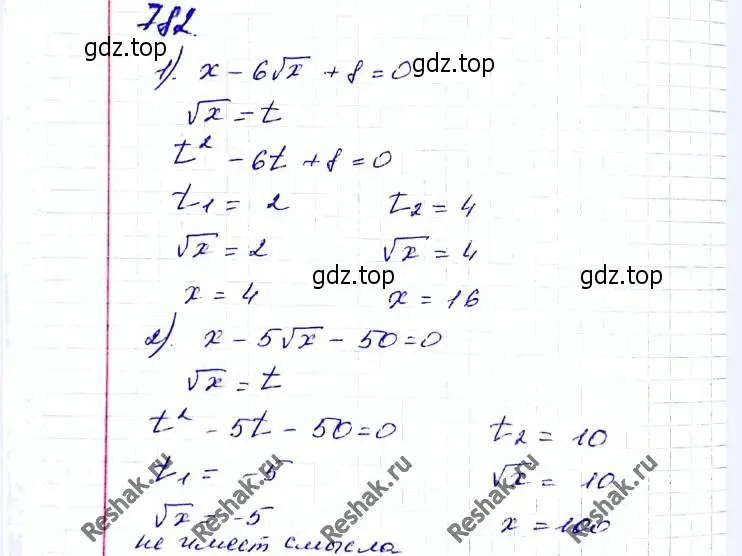 782.
гдз.top
1). x - 6√x + 8 = 0 гдз.top
√x = t
t² - 6t + 8 = 0
t₁ = 2 t₂ = 4
√x = 2 √x = 4
гдз.top гдз.top
x = 4 x = 16
2). x - 5√x - 50 = 0
√x = t
t² - 5t - 50 = 0 t₂ = 10
t₁ = -5 √x = 10
√x = -5 x = 100
не имеет смысла
Reshak.ru Reshak.ru Reshak.ru Reshak.ru